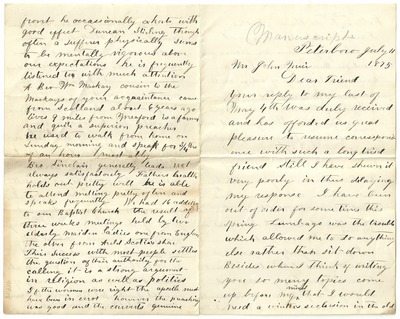 (Manuscripts
Peterboro July 11
1875
Mr. John Muir
Dear Friend
Your reply to my last of
May 4th was duly received
and has afforded us great
pleasure to resume correspond
ence with such a long tried
friend Still I have shown it
very poorly in thus delaying
my response I have been
out of order for some time this
Spring Lumbago was the trouble
which allowed me to do anything
else rather than sit down
Besides when I think of writing
you so many topics come
up before my mind that I would
need a winters seclusion in the old
front he occasionally which with
good effect Duncan Stirling though
often a sufferer physically seems
to be mentally vigorous above
our expectations he is frequently
listened to with much attention
A Rev Wm Mackay cousin to the
Mackays of your acquaintance came
from Scotland about 6 years ago
lives 9 miles from Meaford is a farmer
and quite a superior preacher
he used to walk from home on
Sunday morning and speak for 3/4 hrs
of an hour
Bro Sinclair generally leads not
always satisfactorily Fathers health
holds out pretty well he is able
to attend meeting pretty often and
speaks frequently We had 16 added
to our Baptist Church the result of
three weeks meeting held by two
elderly maiden ladies one from England
the other from Scotland
This success with most people settles
the question of their authority for the
calling it is a strong argument
in religion as well as politics
If the women were right the apostle must
have been in error however the preaching
was good and the converts genuine